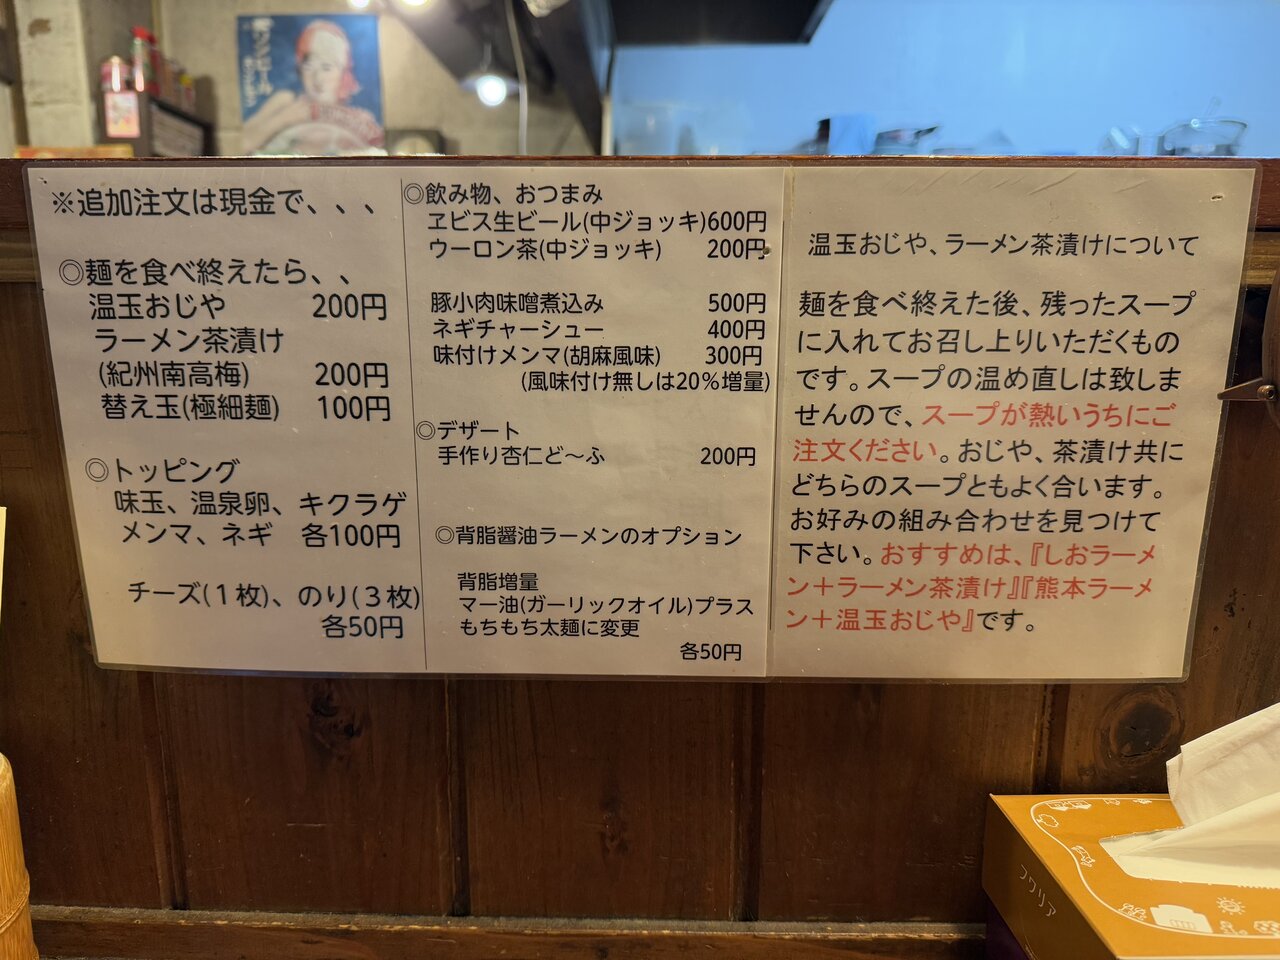 ※追加注文は現金で、、、
◎麺を食べ終えたら、、
温玉おじや 200円
ラーメン茶漬け
(紀州南高梅) 200円
替え玉(極細麺) 100円
◎トッピング
味玉、温泉卵、キクラゲ
メンマ、ネギ 各100円
チーズ(１枚)、のり(３枚)
各50円
◎飲み物、おつまみ
ヱビス生ビール(中ジョッキ)600円
ウーロン茶(中ジョッキ) 200円
豚小肉味噌煮込み 500円
ネギチャーシュー 400円
味付けメンマ(胡麻風味) 300円
(風味付け無しは20％増量)
◎デザート
手作り杏仁ど～ふ 200円
◎背脂醤油ラーメンのオプション
背脂増量
マー油(ガーリックオイル)プラス
もちもち太麺に変更
各50円
温玉おじや、ラーメン茶漬けについて
麺を食べ終えた後、残ったスープ
に入れてお召し上りいただくもの
です。スープの温め直しは致しま
せんので、スープが熱いうちにご
注文ください。おじや、茶漬け共に
どちらのスープともよく合います。
お好みの組み合わせを見つけて
下さい。おすすめは、『しおラーメ
ン＋ラーメン茶漬け』『熊本ラーメ
ン＋温玉おじや』です。
フワリア